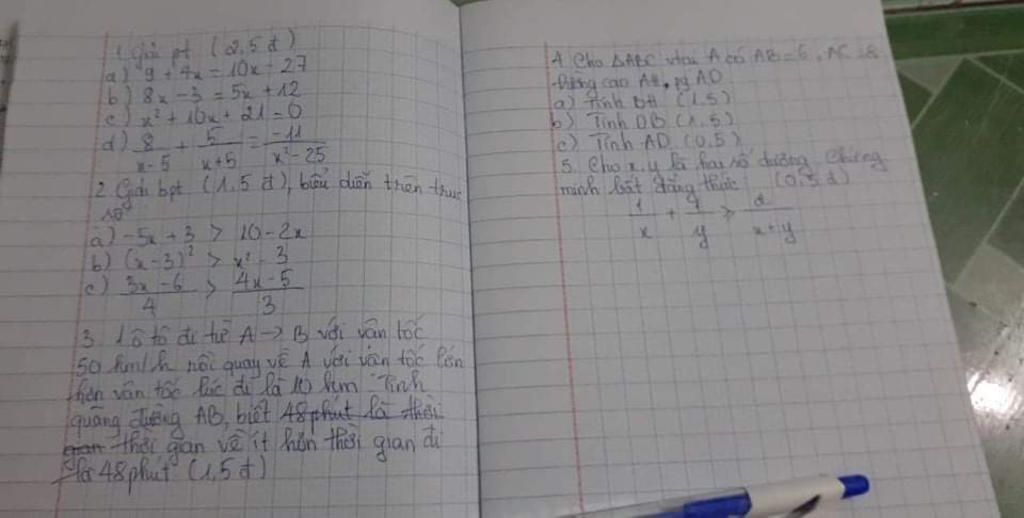 1 Giải pt (2,5 đ)
a) 9 + 4x = 10x - 27
b) 8x - 3 = 5x + 12
c) x² + 10x + 21 = 0
d) 8/(x-5) + 5/(x+5) = -11/(x²-25)
2 Giải bpt (1,5 đ), biểu diễn trên trục
số
a) -5x + 3 > 10 - 2x
b) (x-3)² > x² - 3
c) (3x-6)/4 > (4x-5)/3
3. 1 ô tô đi từ A → B với vận tốc
50 km/h rồi quay về A với vận tốc lớn
hơn vận tốc lúc đi là 10 km Tính
quãng đường AB, biết 48 phút là thời
gian thời gian về ít hơn thời gian đi
là 48 phút (1,5 đ)
4 Cho ΔABC vtại A có AB = 6, AC = 8
Đường cao AH, pg AD
a) Tính BH (1,5)
b) Tính DB (1,5)
c) Tính AD (0,5)
5. Cho x, y là hai số dương. Chứng
minh bất đẳng thức (0,5 đ)
1/x + 1/y > 2/(x+y)